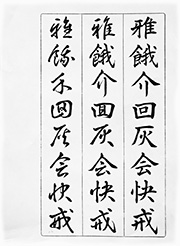 雅餓介回灰会快戒
雅餓介回灰会快戒
雅餓介回灰会快戒